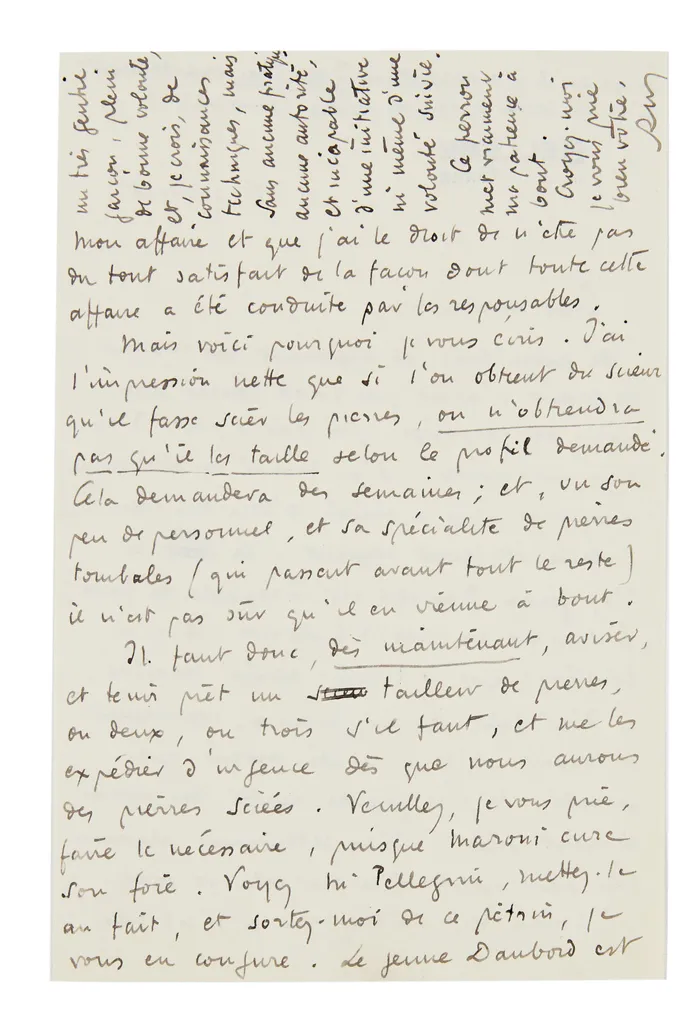 mon affaire et que j'ai le droit de n'être pas
du tout satisfait de la façon dont toute cette
affaire a été conduite par les responsables.
Mais voici pourquoi je vous écris. J'ai
l'impression nette que si l'on obtient du scieur
qu'il fasse scier les pierres, on n'obtiendra
pas qu'il les taille selon le profil demandé.
Cela demandera des semaines ; et, vu son
peu de personnel, et sa spécialité de pierres
tombales (qui passent avant tout le reste)
il n'est pas sûr qu'il en vienne à bout.
Il faut donc, dès maintenant, aviser,
et tenir prêt un tailleur de pierres,
ou deux, ou trois s'il faut, et me les
expédier d'urgence dès que nous aurons
des pierres sciées. Veuillez, je vous prie,
faire le nécessaire, puisque Maroni cure
son foie. Voyez Pellegrin, mettez-le
au fait, et sortez-moi de ce pétrin, je
vous en conjure. Le jeune Daubord est
un très gentil
garçon, plein
de bonne volonté,
et, je crois, de
connaissances
techniques, mais
sans aucune pratique,
aucune autorité,
et incapable
d'une initiative
ni même d'une
volonté suivie.
Ce perron
met vraiment
ma patience à
bout.
Croyez-moi
je vous prie
bien vôtre,